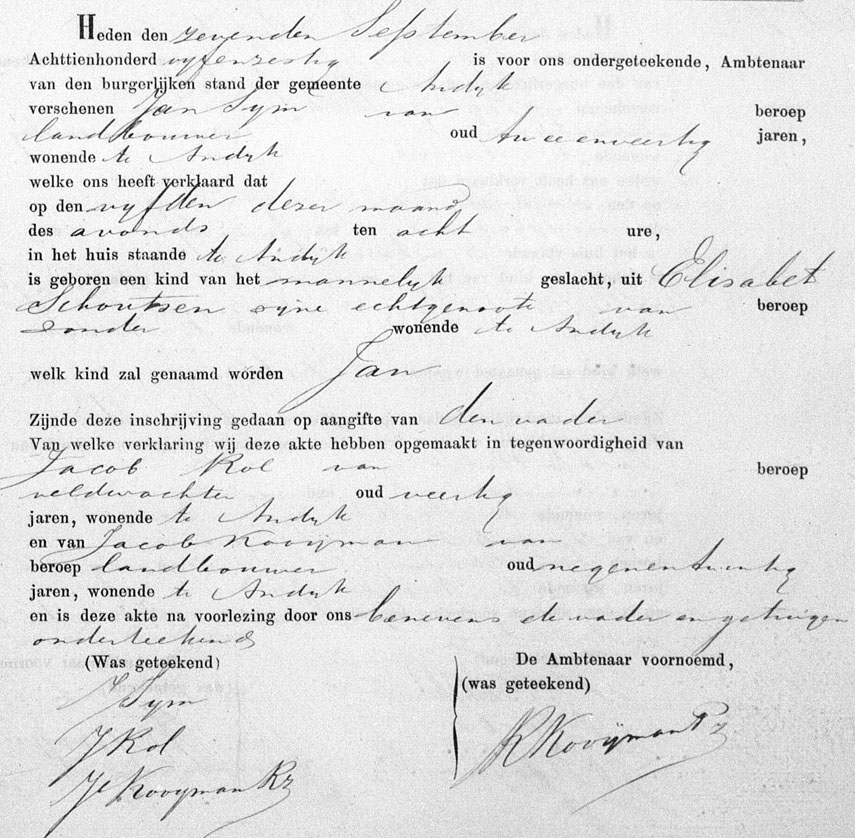 Heden den zevenden September
Achttienhonderd vyfenzestig is voor ons ondergeteekende, Ambtenaar
van den burgerlijken stand der gemeente Andyk
verschenen Jan Sym van beroep
landbouwer oud tweeenveertig jaren,
wonende te Andyk
welke ons heeft verklaard dat
op den vyfden dezer maand
des avonds ten acht ure,
in het huis staande te Andyk
is geboren een kind van het mannelyk geslacht, uit Elisabet
Schoutsen zyne echtgenoote van beroep
zonder wonende te Andyk
welk kind zal genaamd worden Jan
Zijnde deze inschrijving gedaan op aangifte van den vader
Van welke verklaring wij deze akte hebben opgemaakt in tegenwoordigheid van
Jacob Kol van beroep
veldwachter oud veertig
jaren, wonende te Andyk
en van Jacob Kooijman van
beroep landbouwer oud negenentwintig
jaren, wonende te Andyk
en is deze akte na voorlezing door ons benevens de vader en getuigen
onderteekend
(Was geteekend) De Ambtenaar voornoemd,
(was geteekend)
J Sym
J Kol
K Kooijman Pz
Jb Kooyman Rz